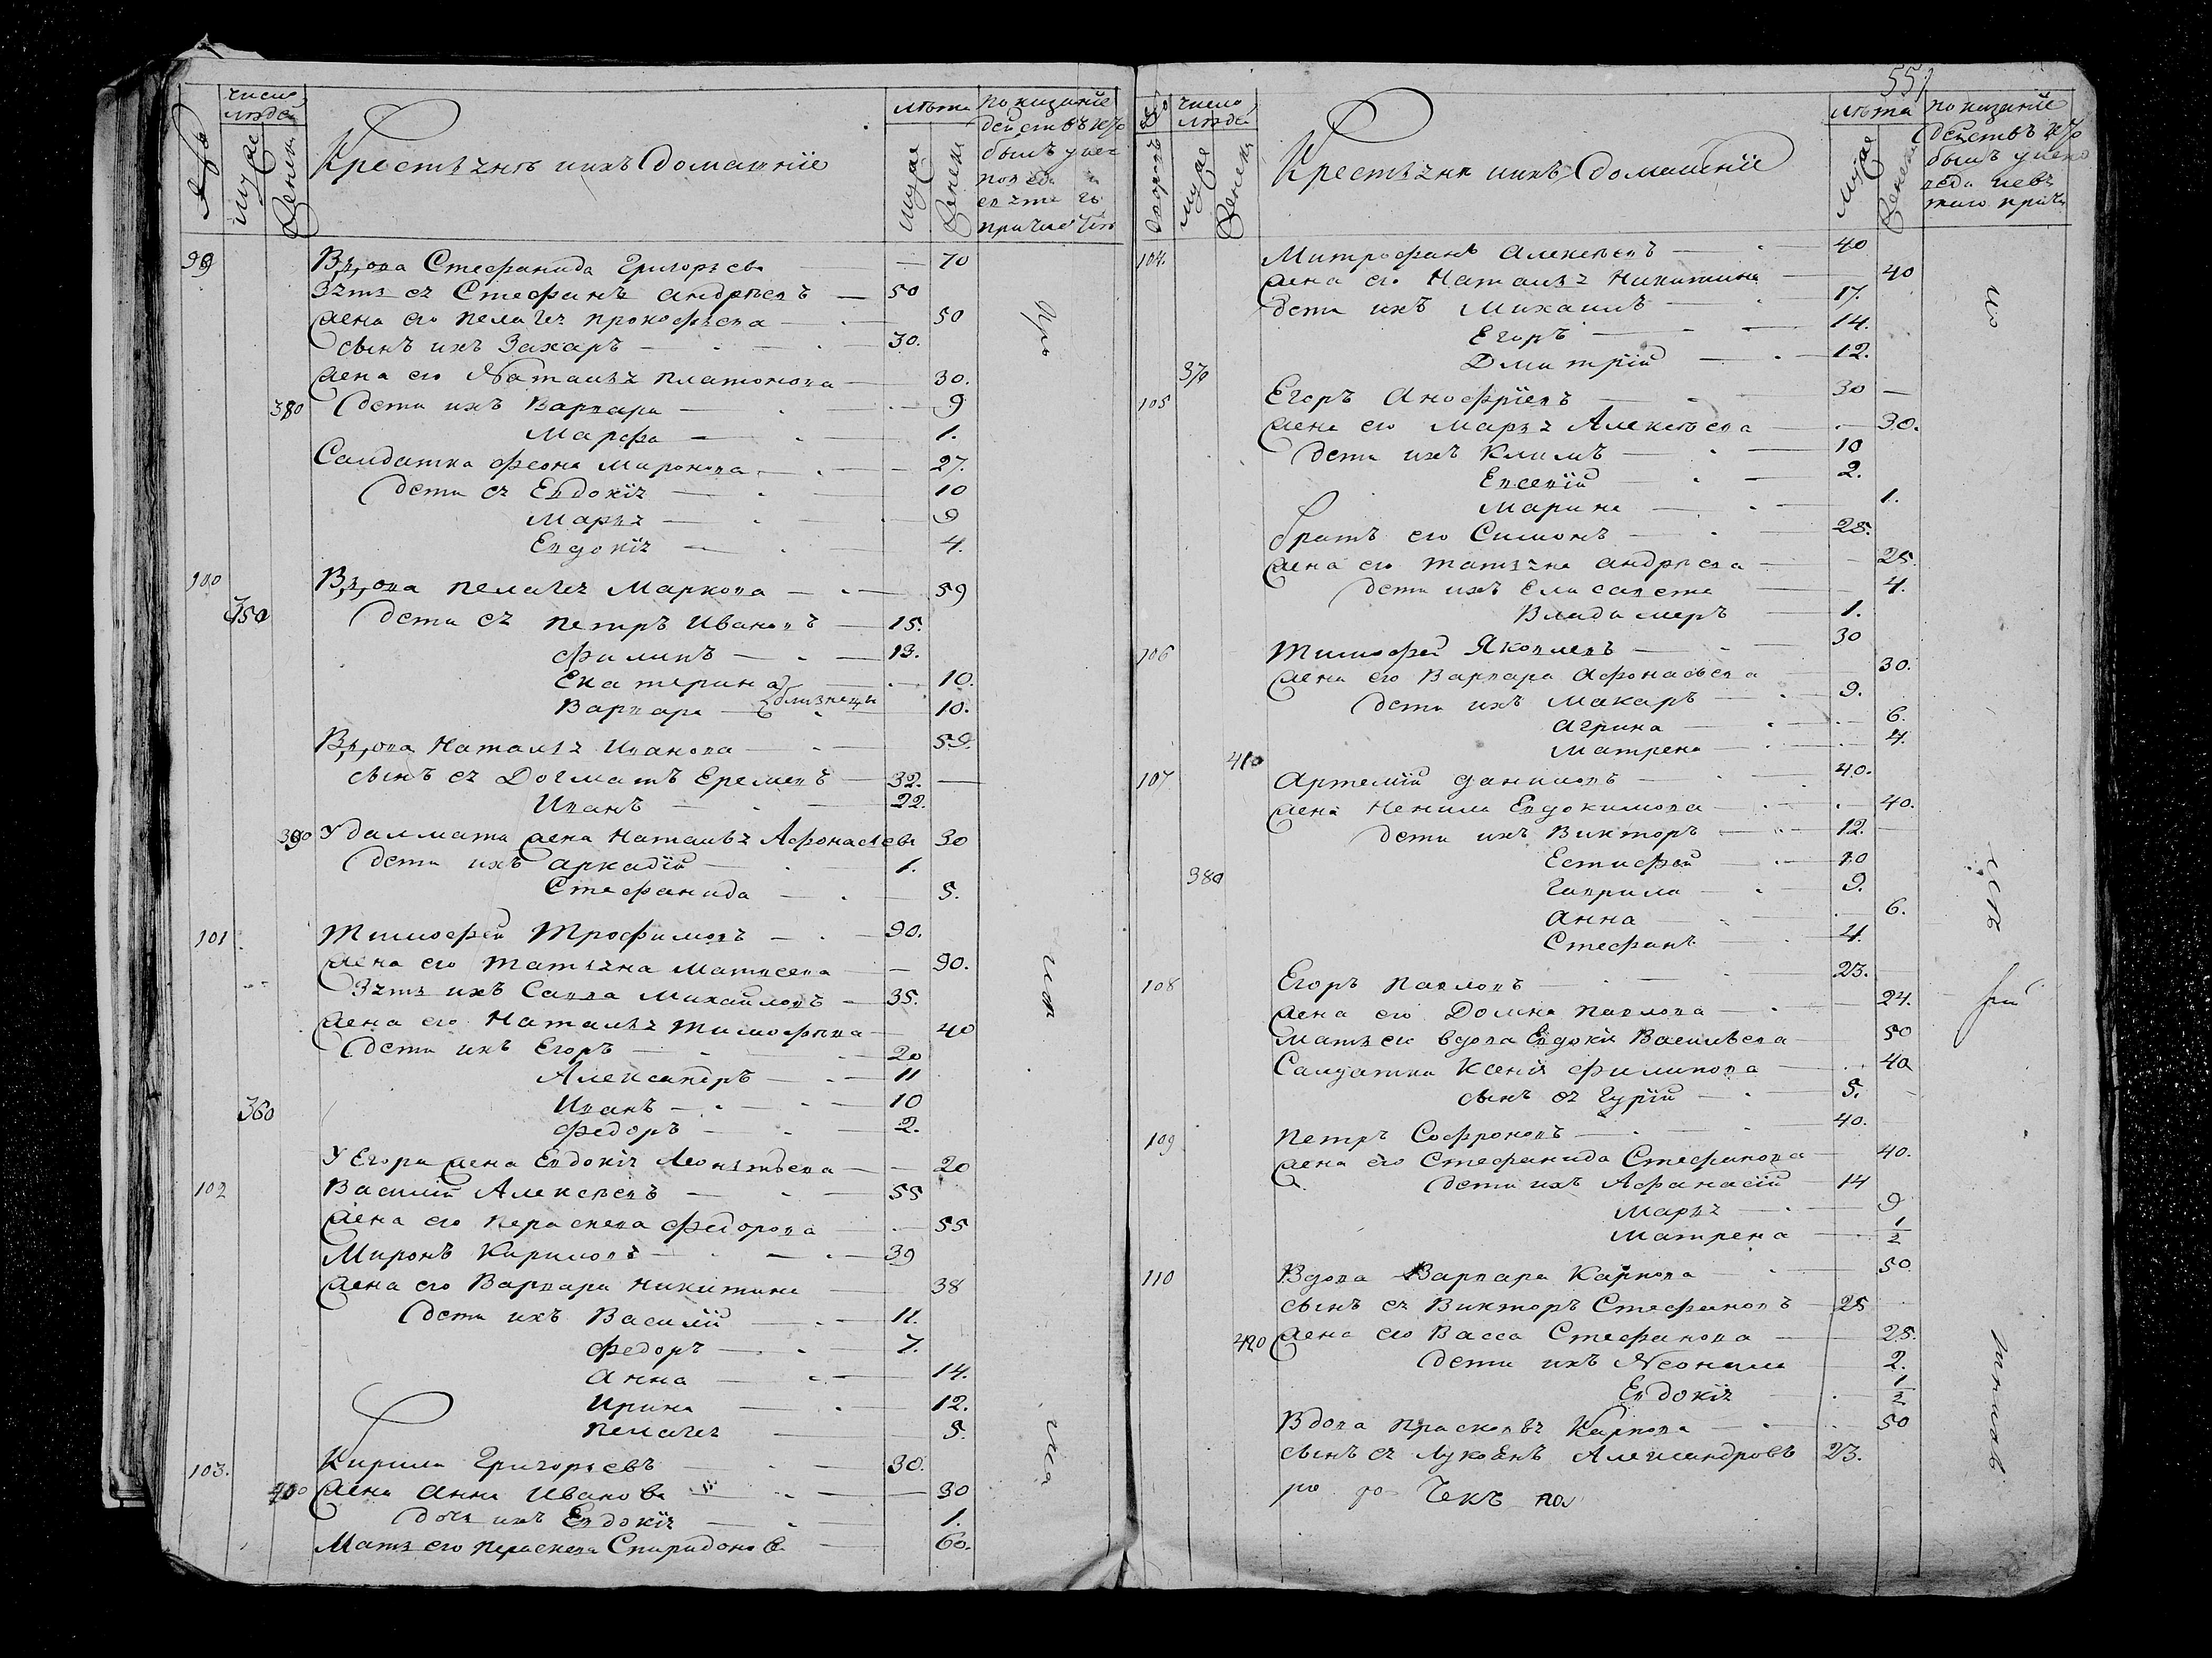 число людей
мужие
женски
Крестьянъ и ихъ домашніе
лѣта
мужие
женски
показаніе
99 В,д,ова Стефанида Григорьева — 70
Зять ея Стефанъ Андрѣевъ — 50
жена его Пелагея Прокофьева — 50
сынъ ихъ Захаръ — 30.
жена его Наталья Платонова — 30.
380 дети ихъ Варвара — 9
Марфа — 1.
Салдатка Феона Миронова — 27.
дети ея Евдокія — 10
Марья — 9
Евдокія — 4.
100 В,д,ова Пелагея Маркова — 59
350 дети ея Петръ Ивановъ — 15.
Филипъ — 13.
Екатерина — 10.
Варвара — близнецы 10.
В,д,ова Наталья Иванова — 59.
сынъ ея Догматъ Еремеевъ — 32. —
Иванъ — 22.
390 У далмата жена Наталья Афонасьева 30
дети ихъ Аркадій — 1.
Стефанида — 5.
101 Тимофей Трофимовъ — 90.
жена его Татьяна Матвеева — 90.
Зять ихъ Савва Михайловъ — 35.
жена его Наталья Тимофѣева — 40
дети ихъ Егоръ — 20
Александръ — 11
360 Иванъ — 10
Федоръ — 2.
У Егора жена Евдокія Леонтьева — 20
102 Василій Алексѣевъ — 55
жена его Параскева Федорова — 55
Миронъ Кириловъ — 39
жена его Варвара Никитина — 38
дети ихъ Василій — 11.
Федоръ — 7.
Анна — 14.
Ирина — 12.
Пелагея — 5.
103. Кирила Григорьевъ — 30.
400 жена Анна Иванова — 30
дочь ихъ Евдокія — 1.
Мать его Параскева Спиридонова — 60.
557
дворовъ
число людей
мужие
женски
Крестьяня и ихъ домашніе
лѣта
мужие
женски
показаніе
104. Митрофанъ Алексѣевъ — 40
жена его Наталья Никитина — 40
дети ихъ Михаилъ — 17.
Егоръ — 14.
370 Дмитрій — 12.
105 Егоръ Анофріевъ — 30 —
жена его Марья Алексѣева — 30.
дети ихъ Климъ — 10
Евсевій — 2.
Марина — 1.
братъ его Симонъ — 25.
жена его Татьяна Андрѣева — 25.
дети ихъ Елисавета — 4.
Владимеръ — 1.
106 Тимофей Яковлевъ — 30
жена его Варвара Афонасьева — 30.
дети ихъ Макаръ — 9.
Агрипа — 6.
410 Матрена — 4.
107 Артемій Даниловъ — 40.
жена Ненила Евдокимова — 40.
дети ихъ Викторъ — 12.
Естифей — 10
380 Гаврила — 9.
Анна — 6.
Стефанъ — 4.
108 Егоръ Павловъ — 23.
жена его Домна Павлова — 24.
мать его вдова Евдокія Васильева — 50
Салдатка Ксенія Филипова — 40
сынъ ея Гурій — 5.
109 Петръ Софроновъ — 40.
жена его Стефанида Стефанова — 40.
дети ихъ Афанасій — 14
Марья — 9
Матрена — 1/2
110 Вдова Варвара Карпова — 50
сынъ ея Викторъ Стефановъ — 25
420 жена его Васса Стефанова — 25.
дети ихъ Неонила — 2.
Евдокія — 1/2
Вдова Прасковья Карпова — 50
сынъ ея Лукоянъ Александровъ 23.